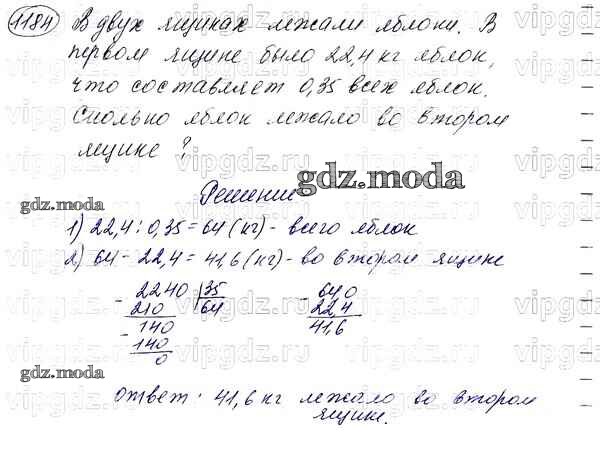 1184 В двух ящиках лежали яблоки. В
первом ящике было 22,4 кг яблок,
что составляет 0,35 всех яблок.
Сколько яблок лежало во втором
ящике?
gdz.moda
gdz.moda
Решение
1) 22,4 : 0,35 = 64 (кг) - всего яблок
2) 64 - 22,4 = 41,6 (кг) - во втором ящике
- 2240 | 35
210 64
- 140
140
0
- 64,0
22,4
41,6
gdz.moda
ответ: 41,6 кг лежало во втором
ящике.
vipgdz.ru